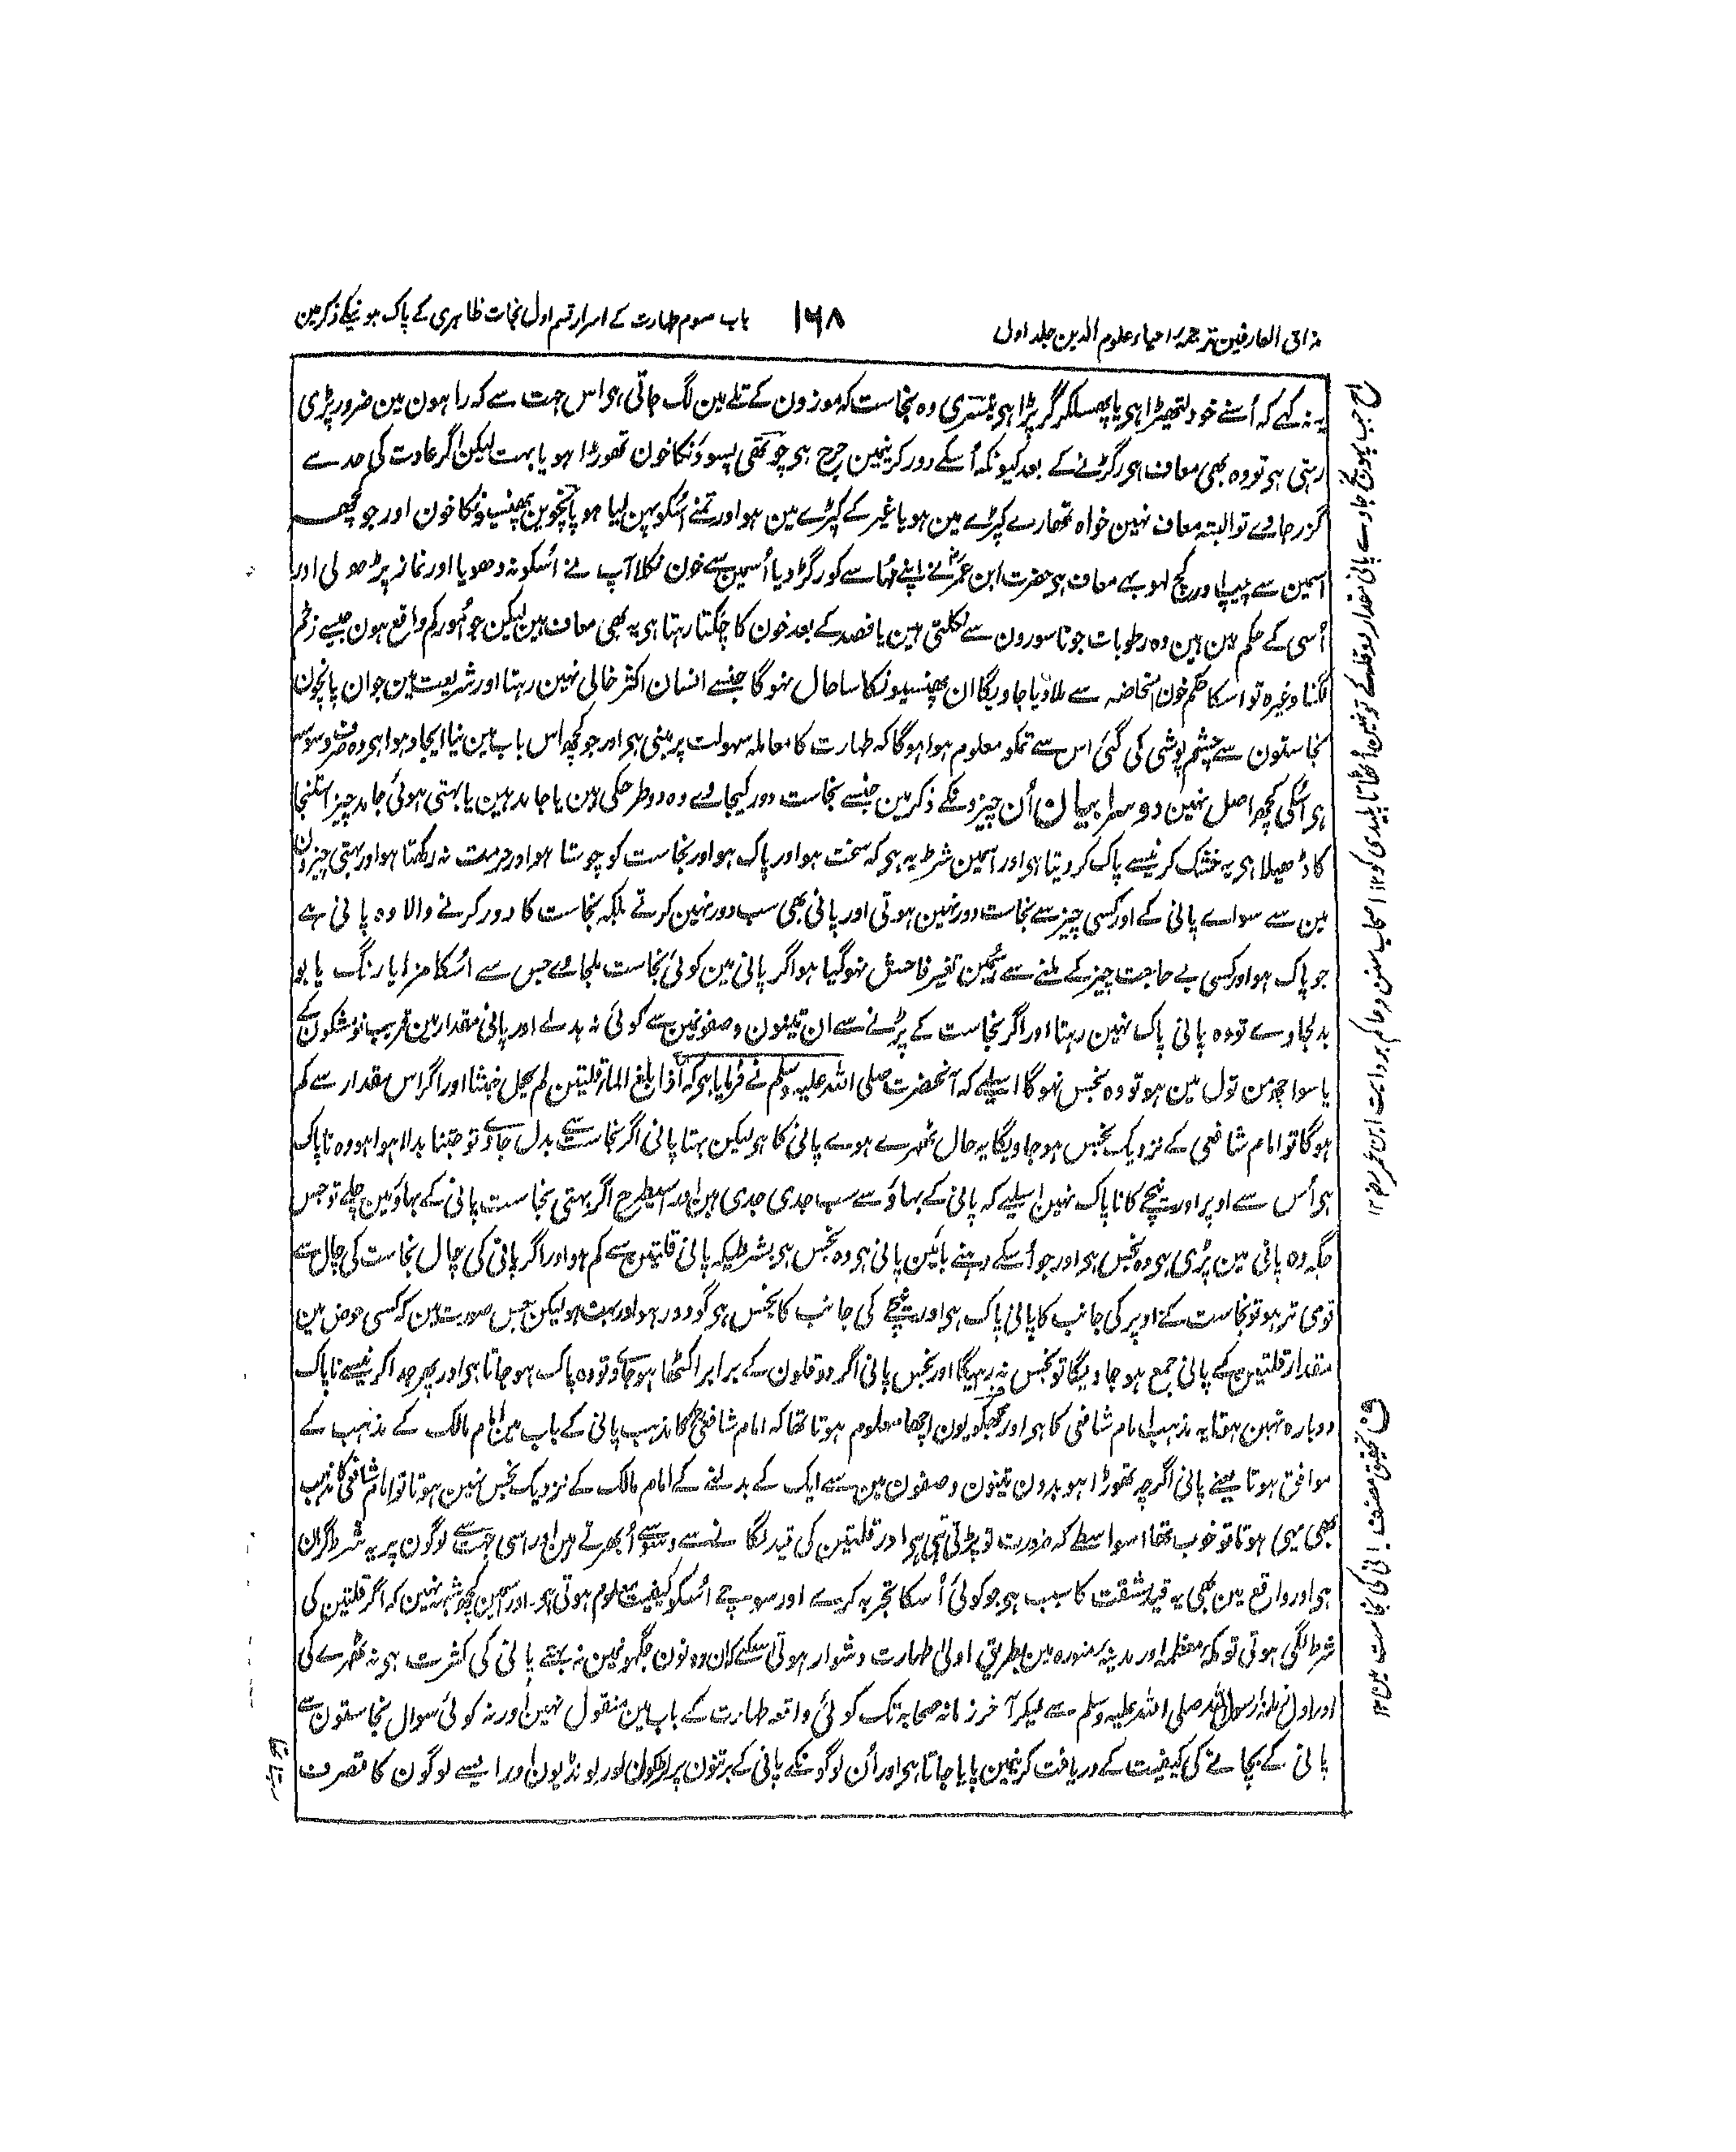 مذاق العارفین ترجمہ احیاء علوم الدین جلد اول
۱۶۸
باب سوم طہارت کے اسرار قسم اول نجاست ظاہری کے پاک ہونیکے ذکر مین
یہ نہ کہے کہ اُسنے خود لتھیڑا ہی یا پھسلکر گر پڑا ہی تیسری وہ نجاست کہ موزون کے تلے مین لگ جاتی ہی اس جہت سے کہ راہون مین ضرور پڑی
رہتی ہی تو وہ بھی معاف ہی رگڑنے کے بعد کیونکہ اُسکے دور کرنیمین حرج ہی چوتھی پسوؤنکا خون تھوڑا ہو یا بہت لیکن اگر عادت کی حد سے
گزر جاوے تو البتہ معاف نہین خواہ تمھارے کپڑے مین ہو یا غیر کے کپڑے مین ہو اور تمنے اُسکو پہن لیا ہو پانچوین پھنسیونکا خون اور جو کچھ
اسمین سے پیپ اور کچ لہو بہے معاف ہی حضرت ابن عمرؓ نے اپنے مُہاسے کو رگڑ دیا اُسمین سے خون نکلا آپ نے اُسکو نہ دھویا اور نماز پڑھ لی اور
اُسی کے حکم مین ہین وہ رطوبات جو ناسورون سے نکلتی ہین یا فصد کے بعد خون کا چھکتا رہتا ہی یہ بھی معاف ہین لیکن جو اُمور کم واقع ہون جیسے زخم
لگنا وغیرہ تو اسکا حکم خون استحاضہ سے ملا دیا جاویگا ان پھنسیونکا سا حال نہوگا جنسے انسان اکثر خالی نہین رہتا اور شریعت مین جو ان پانچون
نجاستون سے چشم پوشی کی گئی اس سے تمکو معلوم ہوا ہوگا کہ طہارت کا معاملہ سہولت پر مبنی ہی اور جو کچھ اس باب مین نیا ایجاد ہوا ہی وہ صرف وسوسہ
ہی اُسکی کچھ اصل نہین دوسرا بیان اُن چیزونکے ذکر مین جنسے نجاست دور کیجاوے وہ دو طرحکی ہین یا جامد ہین یا بہتی ہوئی جامد چیز استنجا
کا ڈھیلا ہی یہ خشک کرنیسے پاک کر دیتا ہی اور اسمین شرط یہ ہی کہ سخت ہو اور پاک ہو اور نجاست کو چوستا ہو اور حرمت نہ رکھتا ہو اور بہتی چیزون
مین سے سواے پانی کے اور کسی چیز سے نجاست دور نہین ہوتی اور پانی بھی سب دور نہین کرتے بلکہ نجاست کا دور کرنے والا وہ پانی ہے
جو پاک ہو اور کسی بے حاجت چیز کے ملنے سے اُسمین تغیر فاحش نہوگیا ہو اگر پانی مین کوئی نجاست ملجاوے جس سے اُسکا مزا یا رنگ یا بو
بدلجاوے تو وہ پانی پاک نہین رہتا اور اگر نجاست کے پڑنے سے ان تینون وصفونمین سے کوئی نہ بدلے اور پانی مقدار مین قریب نو مشکون کے
یا سوا چھ من تول مین ہو تو وہ نجس نہوگا اسلیے کہ آنحضرت صلی اللہ علیہ وسلم نے فرمایا ہی کہ اذا بلغ الماء قلیتین لم یحمل خبثا اور اگر اس مقدار سے کم
ہوگا تو امام شافعی کے نزدیک نجس ہو جاویگا یہ حال ٹھہرے ہوے پانی کا ہی لیکن بہتا پانی اگر نجاست سے بدل جاوے تو جتنا بدلا ہوا ہو وہ ناپاک
ہی اُس سے اوپر اور نیچے کا ناپاک نہین اسلیے کہ پانی کے بہاؤ سے سب جدی جدی ہین اور اسیطرح اگر بہتی نجاست پانی کے بہاؤ مین چلے تو جس
جگہ وہ پانی مین پڑی ہی وہ نجس ہی اور جو اُسکے دہنے بائین پانی ہی وہ نجس ہی بشرطیکہ پانی قلتین سے کم ہو اور اگر پانی کی چال نجاست کی چال سے
قوی تر ہو تو نجاست کے اوپر کی جانب کا پانی پاک ہی اور نیچے کی جانب کا نجس ہی گو دور ہو اور بہت ہو لیکن جس صورت مین کہ کسی حوض مین
مقدار قلتین کے پانی جمع ہو جاویگا تو نجس نہ رہیگا اور نجس پانی اگر دو قلون کے برابر اکٹھا ہو جاوے تو وہ پاک ہو جاتا ہی اور پھر جدا کرنیسے ناپاک
دوبارہ نہین ہوتا یہ مذہب امام شافعی کا ہی اور مجھکو یون اچھا معلوم ہوتا تھا کہ امام شافعیؒ کا مذہب پانی کے باب مین امام مالک کے مذہب کے
موافق ہوتا یعنے پانی اگرچہ تھوڑا ہو بدون تینون وصفون مین سے ایک کے بدلنے کے امام مالک کے نزدیک نجس نہین ہوتا تو امام شافعی کا مذہب
بھی یہی ہوتا تو خوب تھا اسواسطے کہ ضرورت تو پڑتی ہی ہی اور قلتین کی قید لگانے سے وسوسے اُبھرتے ہین اور اسی جہت سے لوگون پر یہ شرط گران
ہی اور واقع مین بھی یہ قید مشقت کا سبب ہی جو کوئی اُسکا تجربہ کرے اور سوچے اُسکو کیفیت معلوم ہوتی ہی اور اسمین کچھ شبہہ نہین کہ اگر قلتین کی
شرط لگی ہوتی تو مکہ معظمہ اور مدینہ منورہ مین بطریق اولی طہارت دشوار ہوتی اسلیے کہ ان دونون جگہونمین نہ بہتے پانی کی کثرت ہی نہ ٹھہرے کی
اور اول زمانہ رسول اللہ صلی اللہ علیہ وسلم سے لیکر آخر زمانہ صحابہ تک کوئی واقعہ طہارت کے باب مین منقول نہین اور نہ کوئی سوال نجاستون سے
پانی کے بچانے کی کیفیت کے دریافت کرنیمین پایا جاتا ہی اور اُن لوگونکے پانی کے برتنون پر لڑکون اور لونڈیون اور ایسے لوگون کا تصرف
ح جب پہونچ جاوے پانی مقدار دو قلے کے تو نہین اُٹھاتا پلیدی کو ۱۲ اصحاب سنن و حاکم بروایت ابن عمر رضہ ۱۲
ف تحقیق مصنف پانی کی نجاست مین ۱۲